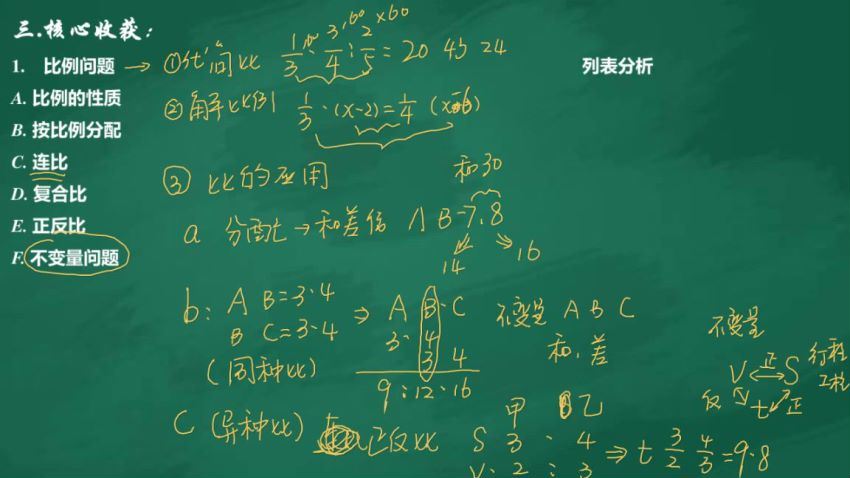 三.核心收获：
1. 比例问题 → ①化简比 1/3 : 3/4 : 2/5 = 20 45 24
×60 ×60
列表分析
A. 比例的性质
②解比例 1/3 · (x-2) = 1/4
B. 按比例分配
C. 连比
D. 复合比
③ 比的应用
和30
E. 正反比
a 分配比 → 和差倍 A B = 7:8
F. 不变量问题
14 16
b: A B = 3:4 ⇒ A B · C 不变量 A B C 不变量
B C = 3:4 3 · 4 和、差 V ⟷ S 行程
正
3 4 工程
(同种比) 反 t 正
9 : 12 : 16
甲 乙
C (异种比) 正反比 S 3 · 4 ⇒ t 3/2 4/3 = 9:8
V · 2 : 3